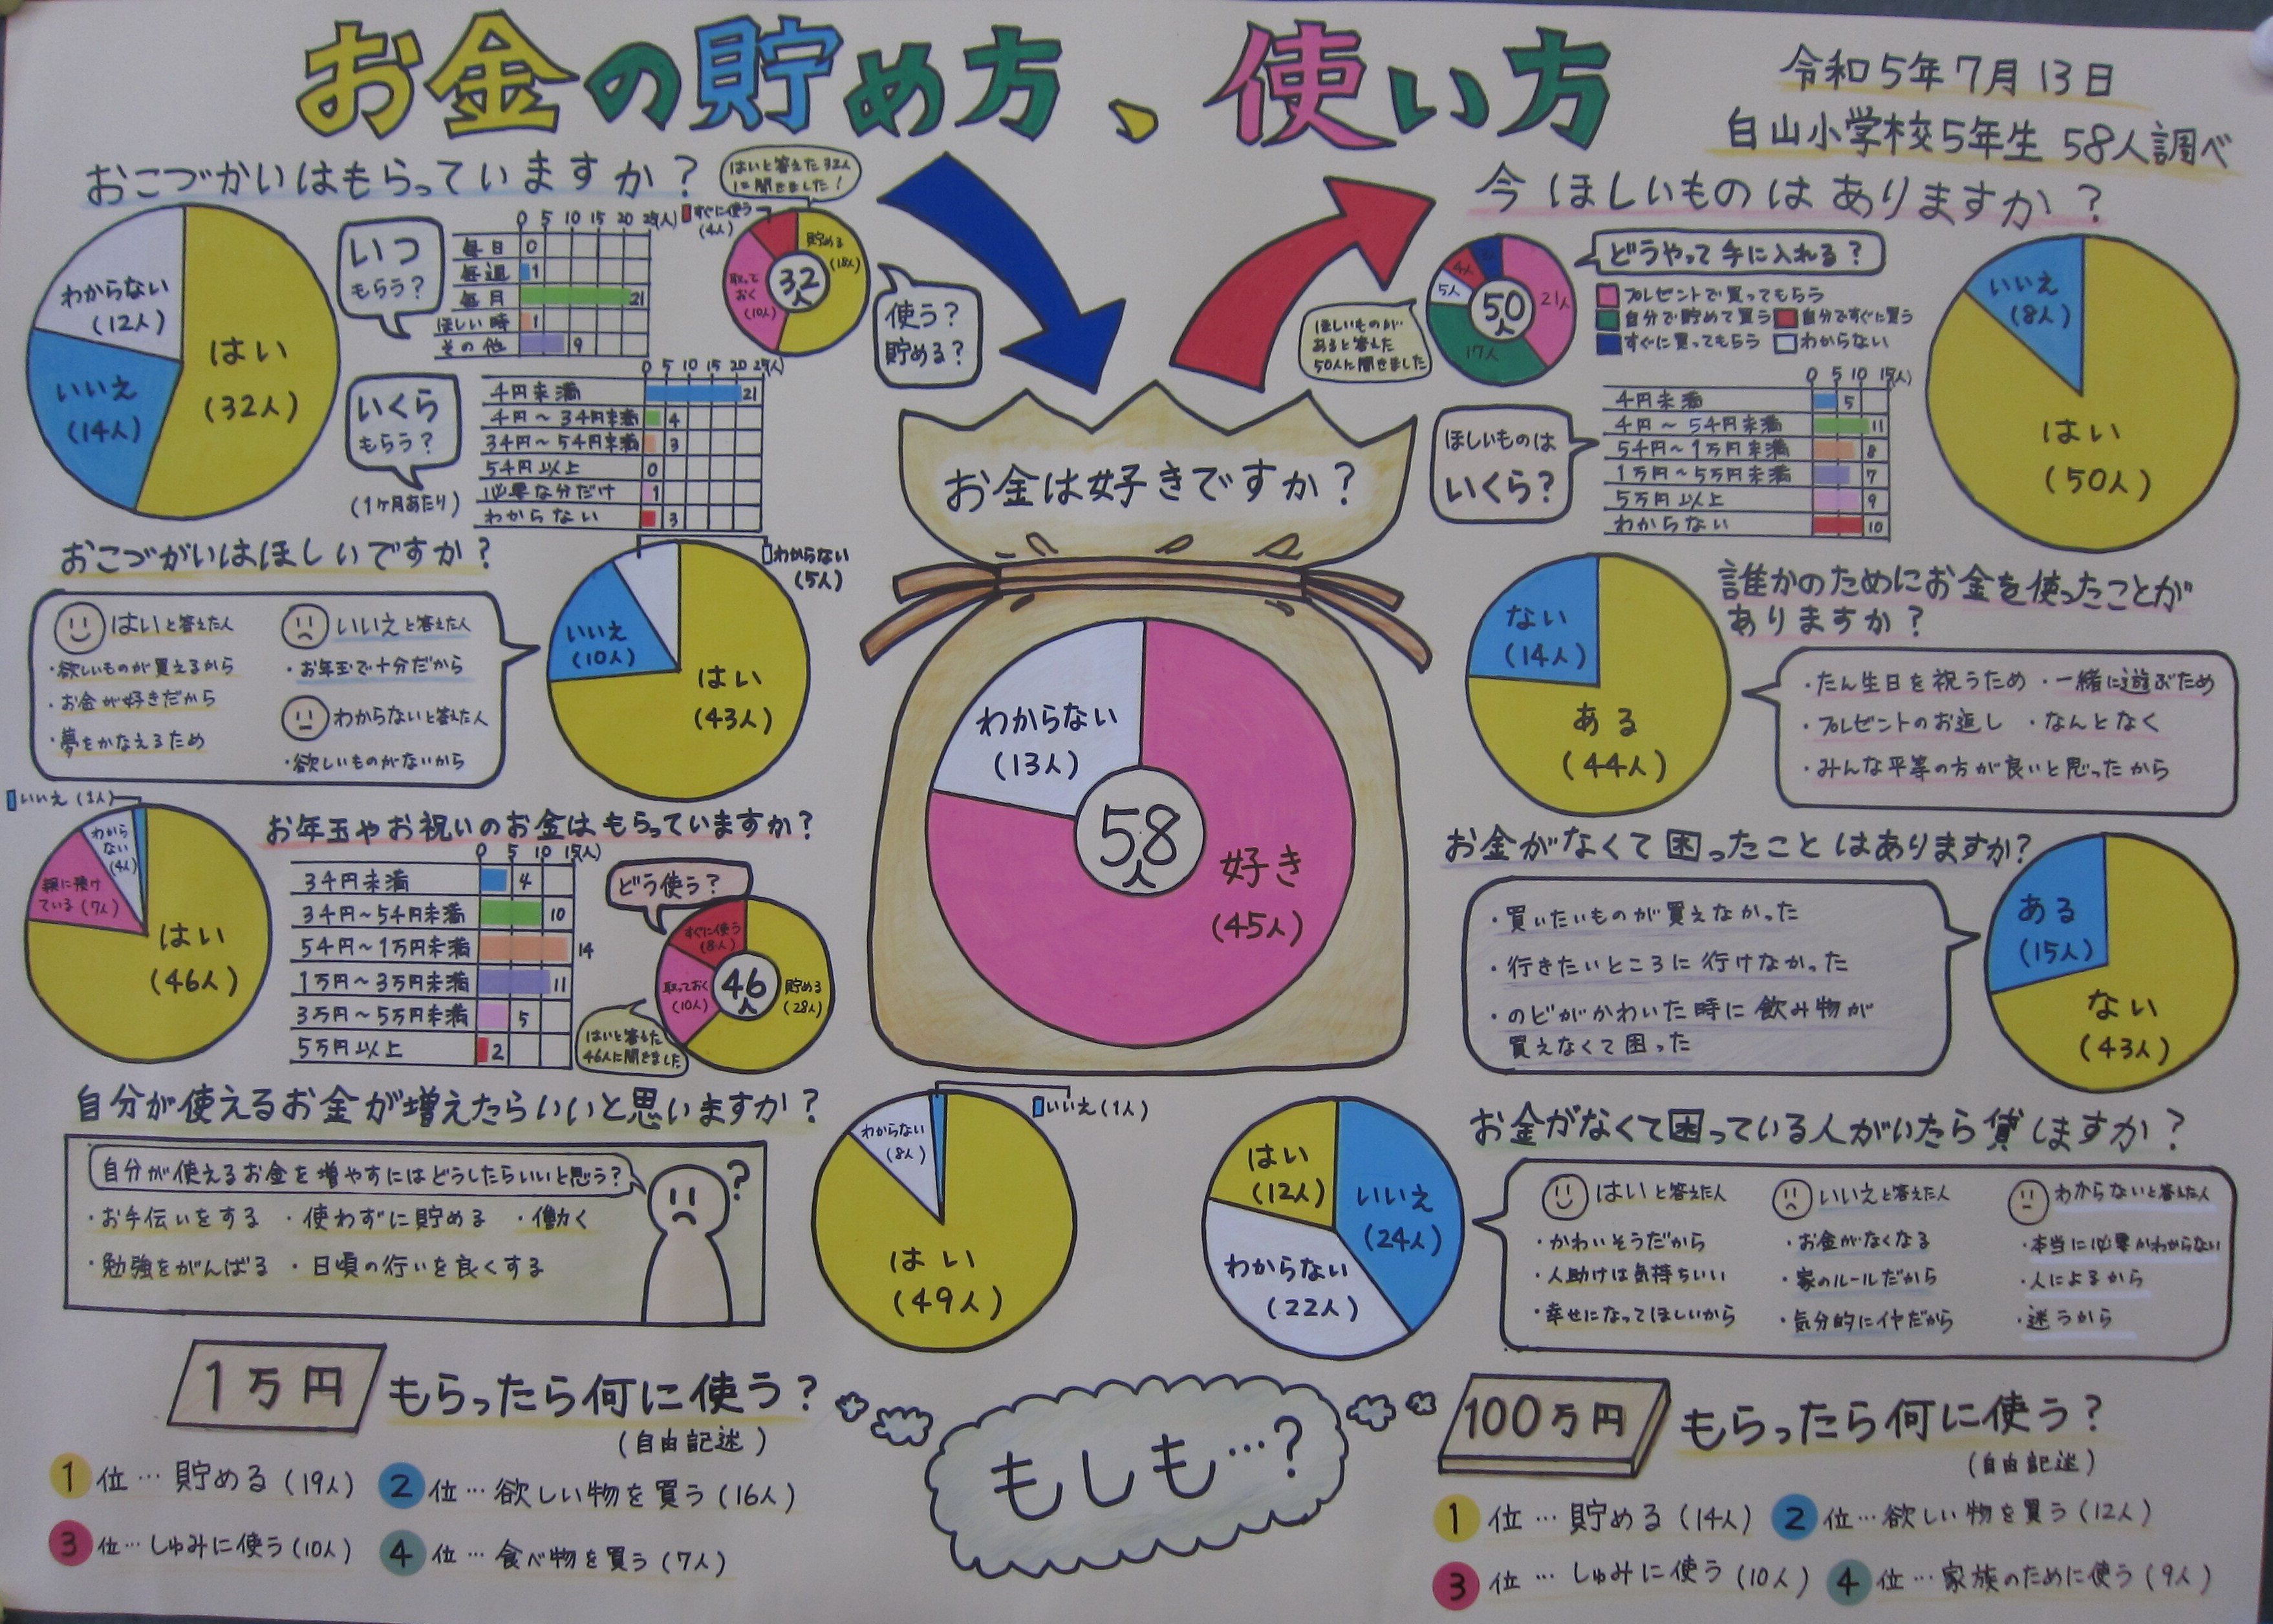 お金の貯め方、使い方
令和5年7月13日
白山小学校5年生 58人調べ
おこづかいはもらっていますか？
はい
(32人)
いいえ
(14人)
わからない
(12人)
いつ
もらう？
0 5 10 15 20 25(人)
毎日 0
毎週 1
毎月 21
ほしい時 1
その他 9
はいと答えた32人
に聞きました！
すぐに使う
(4人)
貯める
(18人)
取って
おく
(10人)
32
人
使う？
貯める？
いくら
もらう？
(1ヶ月あたり)
0 5 10 15 20 25(人)
千円未満 21
千円～3千円未満 4
3千円～5千円未満 3
5千円以上 0
必要な分だけ 1
わからない 3
おこづかいはほしいですか？
はいと答えた人
・欲しいものが買えるから
・お金が好きだから
・夢をかなえるため
いいえと答えた人
・お年玉で十分だから
わからないと答えた人
・欲しいものがないから
わからない
(5人)
いいえ
(10人)
はい
(43人)
お年玉やお祝いのお金はもらっていますか？
いいえ(1人)
わから
ない
(4人)
親に預け
ている(7人)
はい
(46人)
0 5 10 15(人)
3千円未満 4
3千円～5千円未満 10
5千円～1万円未満 14
1万円～3万円未満 11
3万円～5万円未満 5
5万円以上 2
どう使う？
すぐに使う
(8人)
取っておく
(10人)
貯める
(28人)
46
人
はいと答えた
46人に聞きました
自分が使えるお金が増えたらいいと思いますか？
自分が使えるお金を増やすにはどうしたらいいと思う？
・お手伝いをする ・使わずに貯める ・働く
・勉強をがんばる ・日頃の行いを良くする
?
いいえ(1人)
わからない
(8人)
はい
(49人)
お金は好きですか？
わからない
(13人)
58
人
好き
(45人)
今ほしいものはありますか？
どうやって手に入れる？
プレゼントで買ってもらう
自分で貯めて買う 自分ですぐに買う
すぐに買ってもらう わからない
21人
17人
5人
4人
3人
50
人
ほしいものが
あると答えた
50人に聞きました
いいえ
(8人)
はい
(50人)
ほしいものは
いくら？
0 5 10 15(人)
千円未満 5
千円～5千円未満 11
5千円～1万円未満 8
1万円～5万円未満 7
5万円以上 9
わからない 10
誰かのためにお金を使ったことが
ありますか？
ない
(14人)
ある
(44人)
・たん生日を祝うため ・一緒に遊ぶため
・プレゼントのお返し ・なんとなく
・みんな平等の方が良いと思ったから
お金がなくて困ったことはありますか？
・買いたいものが買えなかった
・行きたいところに行けなかった
・のどがかわいた時に飲み物が
買えなくて困った
ある
(15人)
ない
(43人)
お金がなくて困っている人がいたら貸しますか？
はい
(12人)
いいえ
(24人)
わからない
(22人)
はいと答えた人
・かわいそうだから
・人助けは気持ちいい
・幸せになってほしいから
いいえと答えた人
・お金がなくなる
・家のルールだから
・気分的にイヤだから
わからないと答えた人
・本当に必要かわからない
・人によるから
・迷うから
もしも…？
1万円もらったら何に使う？
(自由記述)
1位…貯める(19人) 2位…欲しい物を買う(16人)
3位…しゅみに使う(10人) 4位…食べ物を買う(7人)
100万円もらったら何に使う？
(自由記述)
1位…貯める(14人) 2位…欲しい物を買う(12人)
3位…しゅみに使う(10人) 4位…家族のために使う(9人)